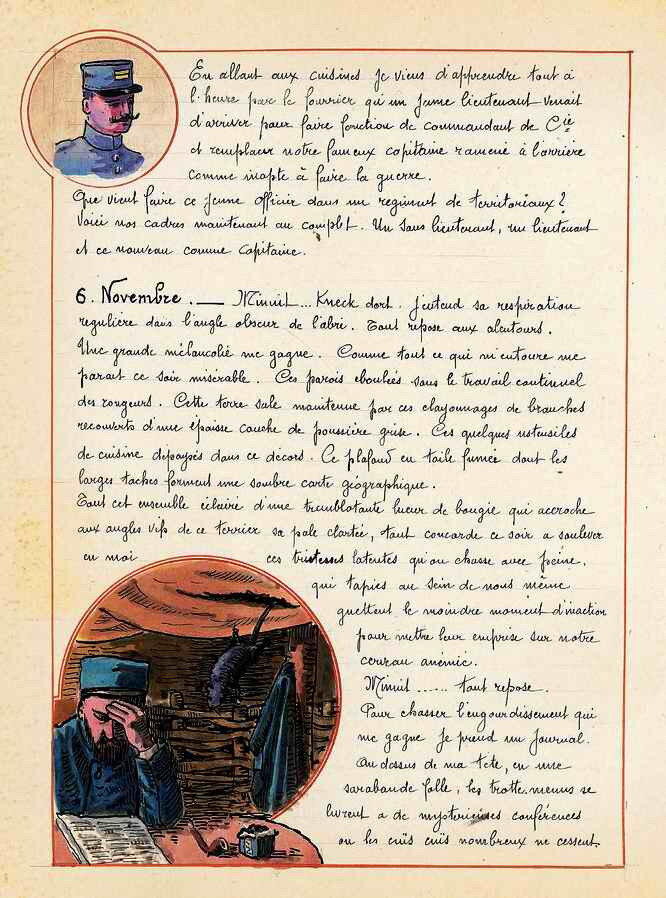 En allant aux cuisines je viens d'apprendre tout à
l'heure par le fourrier qu'un jeune lieutenant venait
d'arriver pour faire fonction de commandant de Cie
et remplacer notre fameux capitaine ramené à l'arrière
comme inapte à faire la guerre.
Que vient faire ce jeune officier dans un regiment de territoriaux ?
Voici nos cadres maintenant au complet. Un sous lieutenant, un lieutenant
et ce nouveau comme Capitaine.
6. Novembre. — Minuit... Kneck dort. J'entend sa respiration
reguliere dans l'angle obscur de l'abri. Tout repose aux alentours.
Une grande mélancolie me gagne. Comme tout ce qui m'entoure me
parait ce soir misérable. Ces parois eboulées sous le travail continuel
des rongeurs. Cette terre sale maintenue par ces clayonnages de branches
recouverts d'une épaisse couche de poussière grise. Ces quelques ustensiles
de cuisine depaysés dans ce décors. Ce plafond en toile fumée dont les
larges taches forment une sombre carte géographique.
Tout cet ensemble éclairé d'une tremblotante lueur de bougie qui accroche
aux angles vifs de ce terrier sa pale clartée, tout concorde ce soir a soulever
en moi ces tristesses latentes qu'on chasse avec peine,
qui tapies au sein de nous même
guettent le moindre moment d'inaction
pour mettre leur emprise sur notre
cerveau anémié.
Minuit ...... tout repose.
Pour chasser l'engourdissement qui
me gagne je prend un journal.
Au dessus de ma tete, en une
sarabande folle, les trotte-menus se
livrent a de mysterieuses conférences
ou les cuïs cuïs nombreux ne cessent.